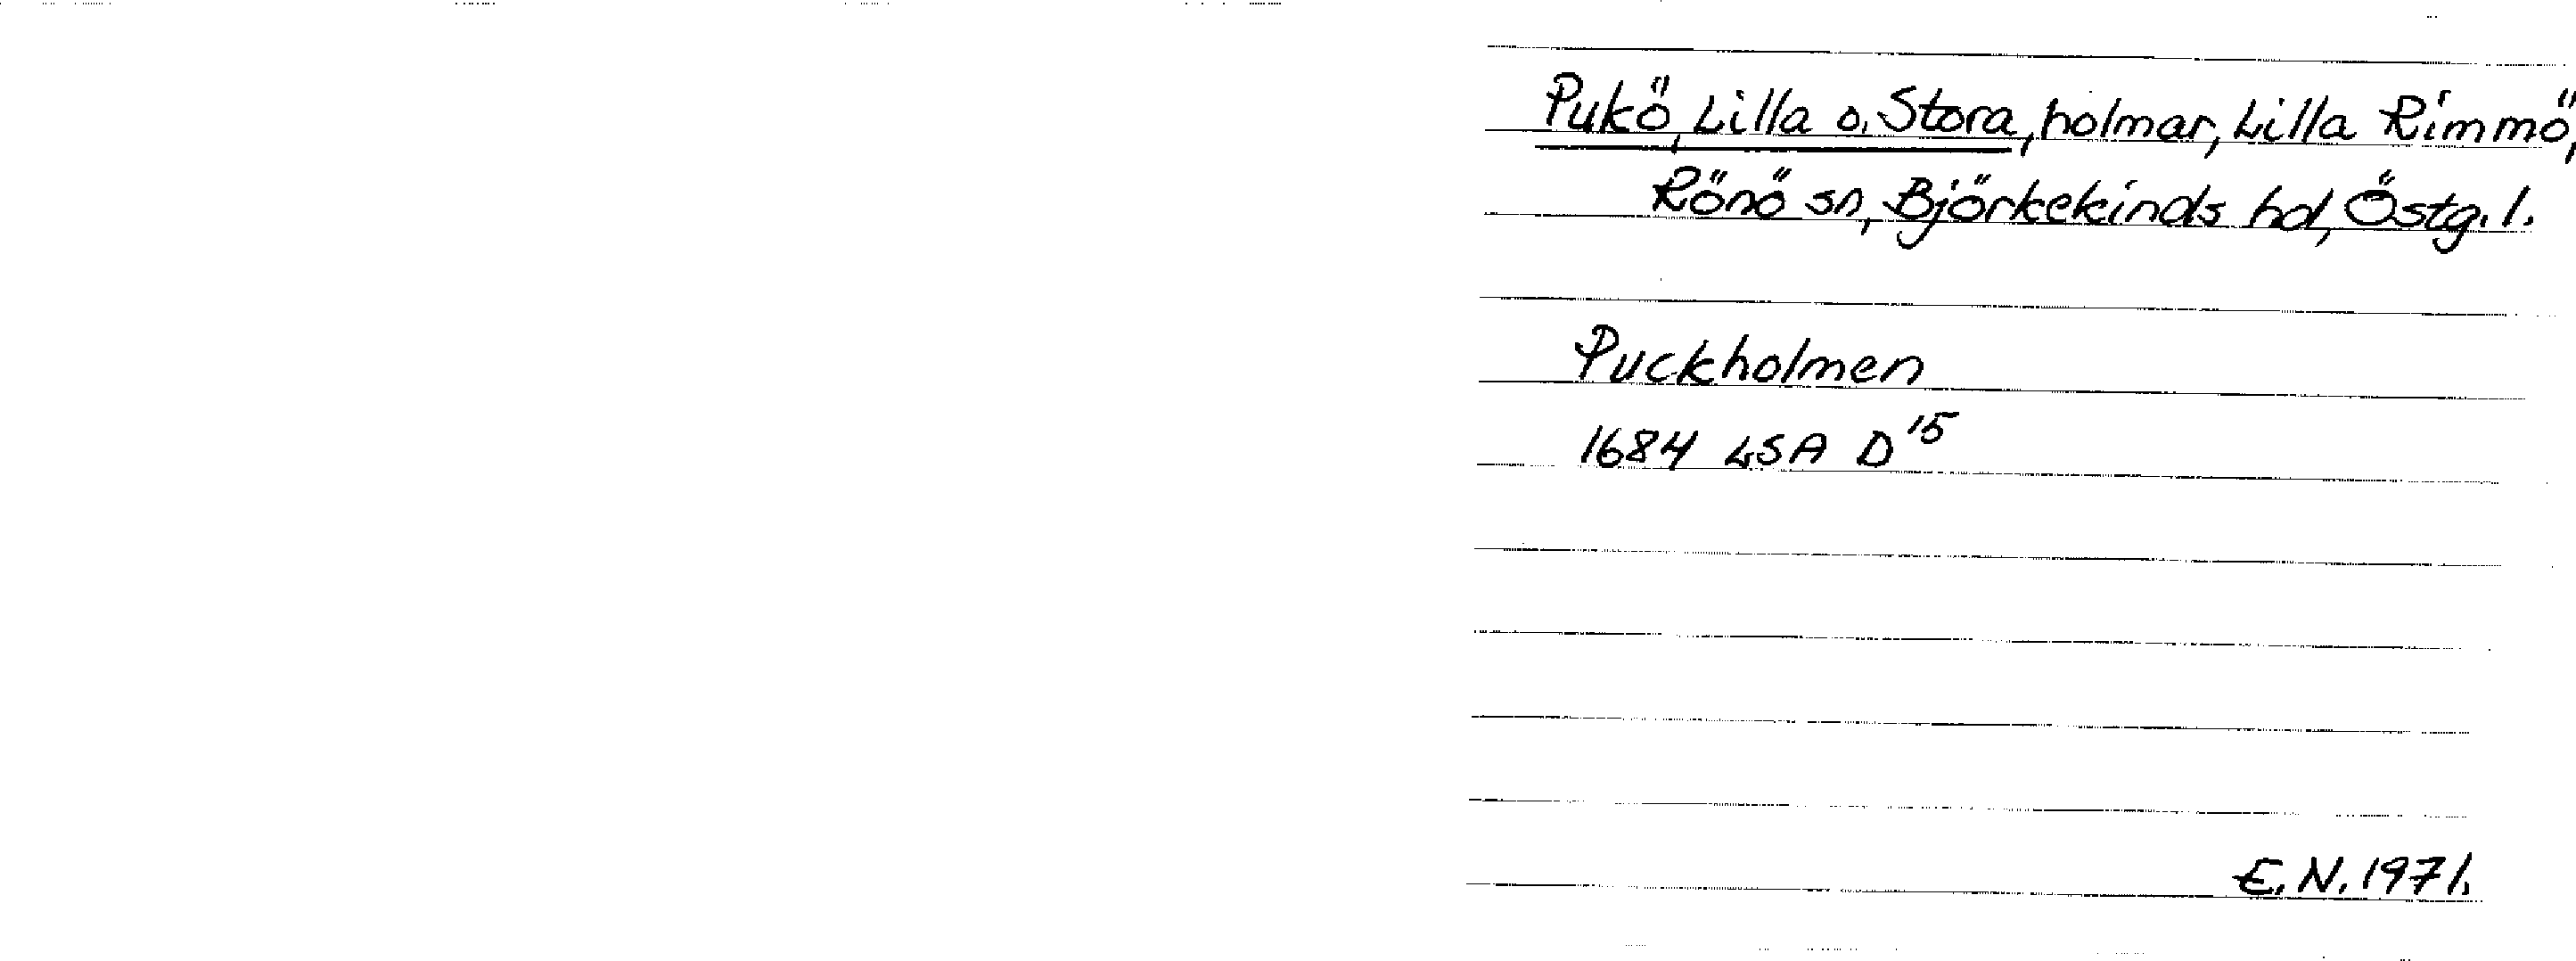 Pukö, Lilla o. Stora, holmar, Lilla Rimmö,
Rönö sn, Björkekinds hd, Östg. l.
Puckholmen
1684 LSA D 15
E. N. 1971.